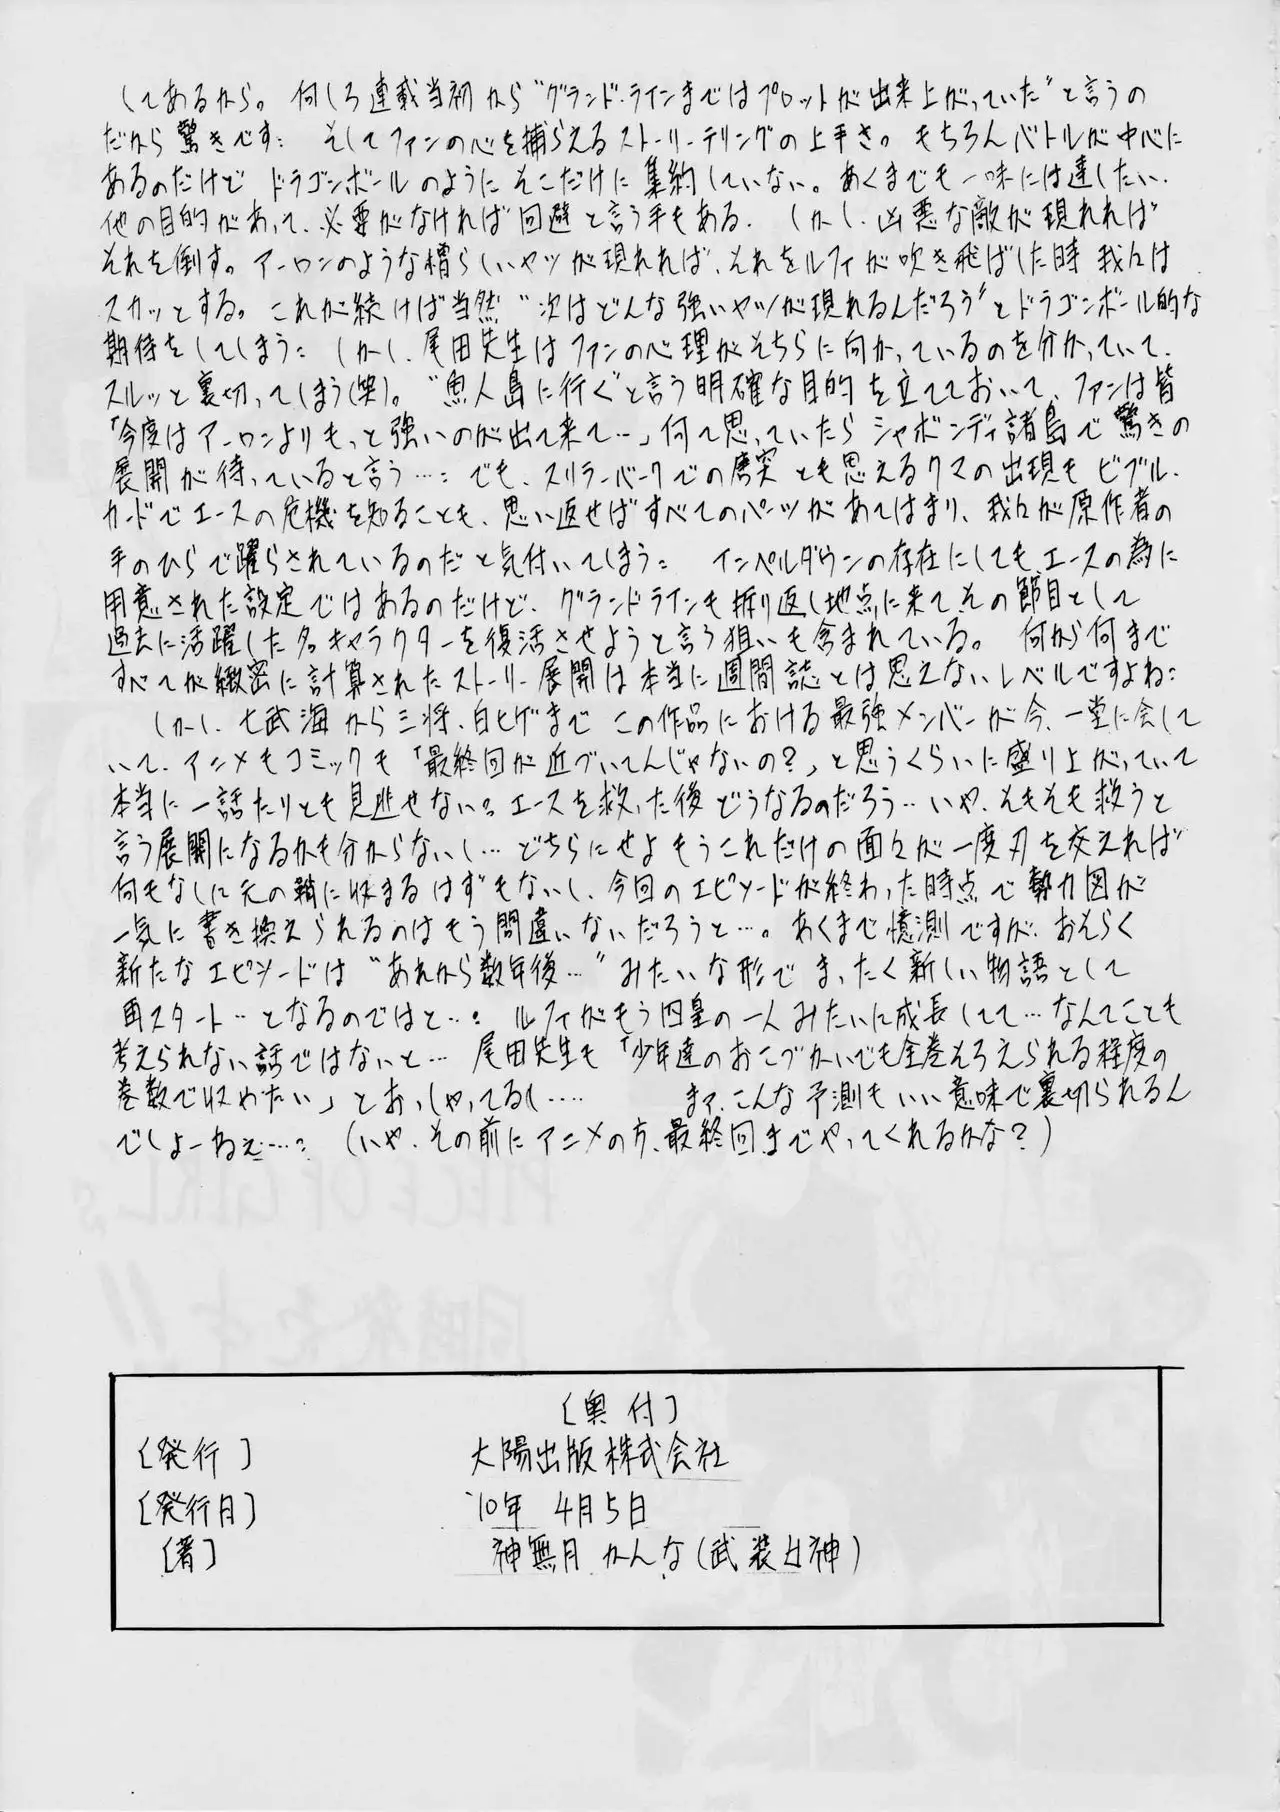 してあるから。何しろ連載当初から“グランド・ラインまではプロットが出来上がっていた”と言うの
だから驚きです: そしてファンの心を捕らえるストーリーテリングの上手さ。もちろんバトルが中心に
あるのだけど ドラゴンボールのようにそこだけに集約していない。あくまでも一味には達したい.
他の目的があって、必要がなければ回避と言う手もある. しかし、凶悪な敵が現れれば
それを倒す。アーロンのような憎らしいヤツが現れれば、それをルフィが吹き飛ばした時 我々は
スカッとする。これが続けば当然“次はどんな強いヤツが現れるんだろう”とドラゴンボール的な
期待をしてしまう: しかし、尾田先生はファンの心理がそちらに向かっているのを分かっていて、
スルッと裏切ってしまう(笑)。“魚人島に行ぐ”と言う明確な目的を立てておいて、ファンは皆
「今度はアーロンよりもっと強いのが出て来て…」何て思っていたらシャボンディ諸島で驚きの
展開が待っていると言う…: でも、スリラーバークでの唐突とも思えるクマの出現もビブル.
カードでエースの危機を知ることも、思い返せばすべてのパーツがあてはまり、我々が原作者の
手のひらで躍らされているのだと気付いてしまう: インペルダウンの存在にしても、エースの為に
用意された設定ではあるのだけど、グランドラインも折り返し地点に来てその節目として
過去に活躍した名キャラクターを復活させようと言う狙いも含まれている。 何から何まで
すべてが緻密に計算されたストーリー展開は本当に週間誌とは思えないレベルですよね:
しかし、七武海から三将、白ヒゲまで この作品における最強メンバーが今、一堂に会して
いて、アニメもコミックも「最終回が近づいてんじゃないの?」と思うくらいに盛り上がっていて
本当に一話たりとも見逃せない? エースを救った後どうなるのだろう…いや、そもそも救うと
言う展開になるかも分からないし…どちらにせよもうこれだけの面々が一度刃を交えれば
何もなしに元の鞘に収まるはずもないし、今回のエピソードが終わった時点で勢力図が
一気に書き換えられるのはもう間違いないだろうと…。あくまで憶測ですが、おそらく
新たなエピソードは“あれから数年後…”みたいな形でまったく新しい物語として
再スタート…となるのではと…? ルフィがもう四皇の一人みたいに成長してて…なんてことも
考えられない話ではないと… 尾田先生も「少年達のおこづかいでも全巻そろえられる程度の
巻数で収めたい」とおっしゃってるし…. まァ、こんな予測もいい意味で裏切られるん
でしょーねぇ…? (いや、その前にアニメの方、最終回までやってくれるかな?)
[奥付]
[発行] 大陽出版株式会社
[発行日] '10年 4月5日
[著] 神無月かんな(武装女神)